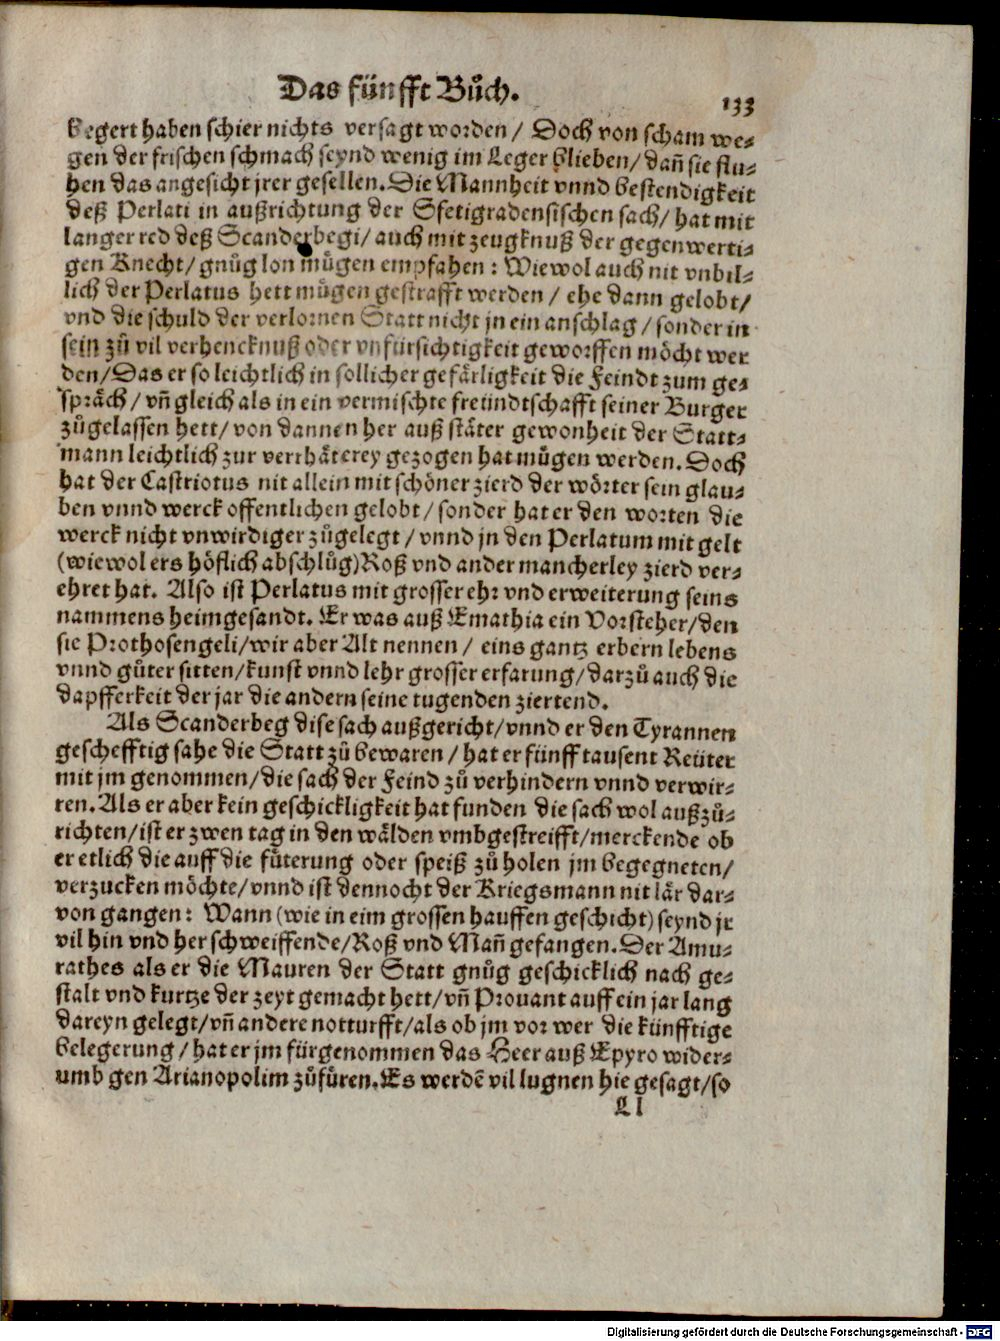 Das fünfft Bůch.
133
begert haben schier nichts versagt worden / Doch von scham we⸗
gen der frischen schmach seynd wenig im Leger blieben / dañ sie flu⸗
hen das angesicht jrer gesellen. Die Mannheit vnnd bestendigkeit
deß Perlati in außrichtung der Sfetigradensischen sach / hat mit
langer red deß Scanderbegi / auch mit zeugknuß der gegenwerti⸗
gen Knecht / gnůg lon mügen empfahen : Wiewol auch nit vnbil⸗
lich der Perlatus hett mügen gestrafft werden / ehe dann gelobt /
vnd die schuld der verlornen Statt nicht jn ein anschlag / sonder in
sein zů vil verhencknuß oder vnfürsichtigkeit geworffen möcht wer
den / Das er so leichtlich in sollicher gefärligkeit die Feindt zum ge⸗
spräch / vñ gleich als in ein vermischte freündtschafft seiner Burger
zůgelassen hett / von dannen her auß stäter gewonheit der Statt⸗
mann leichtlich zur verrhäterey gezogen hat mügen werden. Doch
hat der Castriotus nit allein mit schöner zierd der wörter sein glau⸗
ben vnnd werck offentlichen gelobt / sonder hat er den worten die
werck nicht vnwirdiger zůgelegt / vnnd jn den Perlatum mit gelt
(wiewol ers höflich abschlůg) Roß vnd ander mancherley zierd ver⸗
ehret hat. Also ist Perlatus mit grosser ehr vnd erweiterung seins
nammens heimgesandt. Er was auß Emathia ein Vorsteher / den
sie Prothosengeli / wir aber Alt nennen / eins gantz erbern lebens
vnnd gůter sitten / kunst vnnd lehr grosser erfarung / darzů auch die
dapfferkeit der jar die andern seine tugenden ziertend.
Als Scanderbeg dise sach außgericht / vnnd er den Tyrannen
geschefftig sahe die Statt zů bewaren / hat er fünff tausent Reüter
mit jm genommen / die sach der Feind zů verhindern vnnd verwir⸗
ren. Als er aber kein geschickligkeit hat funden die sach wol außzů⸗
richten / ist er zwen tag in den wälden vmbgestreifft / merckende ob
er etlich die auff die fůterung oder speiß zů holen jm begegneten /
verzucken möchte / vnnd ist dennocht der Kriegsmann nit lär dar⸗
von gangen : Wann (wie in eim grossen hauffen geschicht) seynd jr
vil hin vnd her schweiffende / Roß vnd Mañ gefangen. Der Amu⸗
rathes als er die Mauren der Statt gnůg geschicklich nach ge⸗
stalt vnd kurtze der zeyt gemacht hett / vñ Prouant auff ein jar lang
dareyn gelegt / vñ andere notturfft / als ob jm vor wer die künfftige
belegerung / hat er jm fürgenommen das Heer auß Epyro wider⸗
umb gen Arianopolim zůfüren. Es werdē vil lugnen hie gesagt / so
Ll
Digitalisierung gefördert durch die Deutsche Forschungsgemeinschaft - DFG